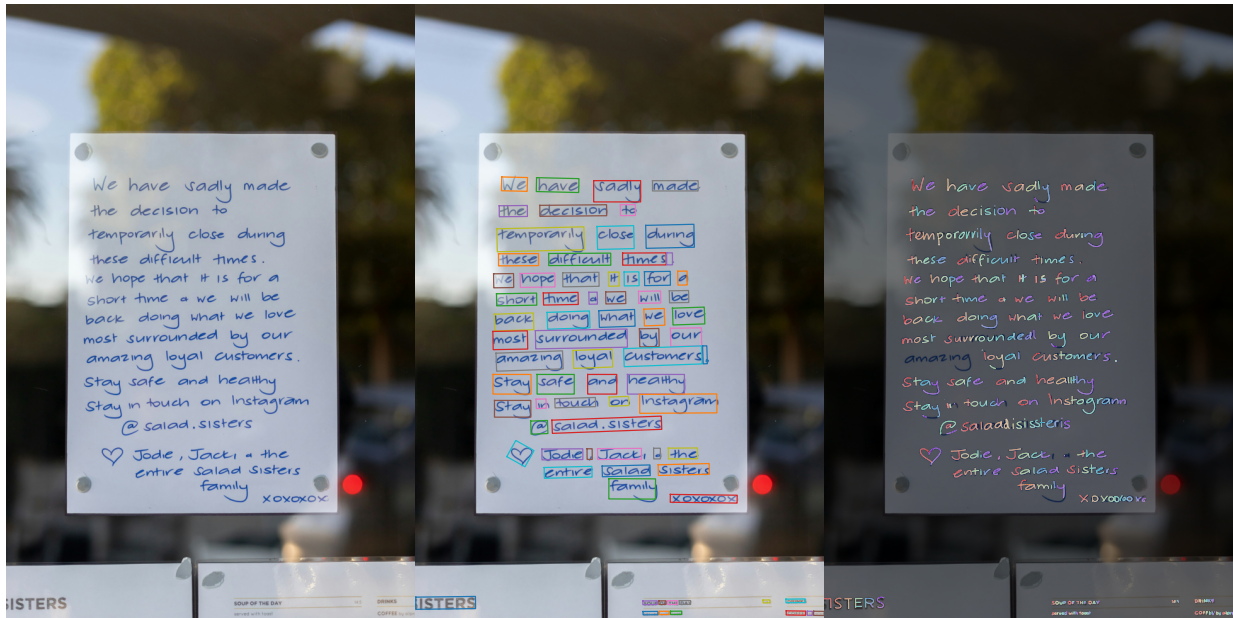 We have sadly made
the decision to
temporarily close during
these difficult times.
We hope that it is for a
short time & we will be
back doing what we love
most surrounded by our
amazing loyal customers.
Stay safe and healthy
Stay in touch on Instagram
@salad.sisters
♡ Jodie, Jack, & the
entire Salad Sisters
family
xoxoxox
SISTERS
SOUP OF THE DAY
served with toast
DRINKS
COFFEE
We have sadly made
the decision to
temporarily close during
these difficult times.
We hope that it is for a
short time & we will be
back doing what we love
most surrounded by our
amazing loyal customers.
Stay safe and healthy
Stay in touch on Instagram
@salad.sisters
♡ Jodie, Jack, & the
entire Salad Sisters
family
xoxoxox
SISTERS
SOUP OF THE DAY
We have sadly made
the decision to
temporarily close during
these difficult times.
We hope that it is for a
short time & we will be
back doing what we love
most surrounded by our
amazing loyal customers.
Stay safe and healthy
Stay in touch on Instagram
@salaadisissteris
♡ Jodie, Jack, & the
entire Salad Sisters
family
SISTERS
SOUP OF THE DAY
served with toast
DRINKS
COFFEE